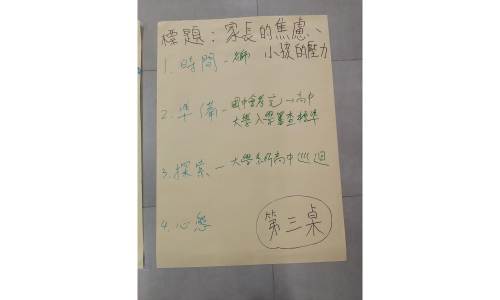 標題：家長的焦慮、
小孩的壓力
1. 時間-
2. 準備-國中會考完→高中
大學入學審查標準
3. 探索-大學系所高中巡迴
4. 心態
第三桌